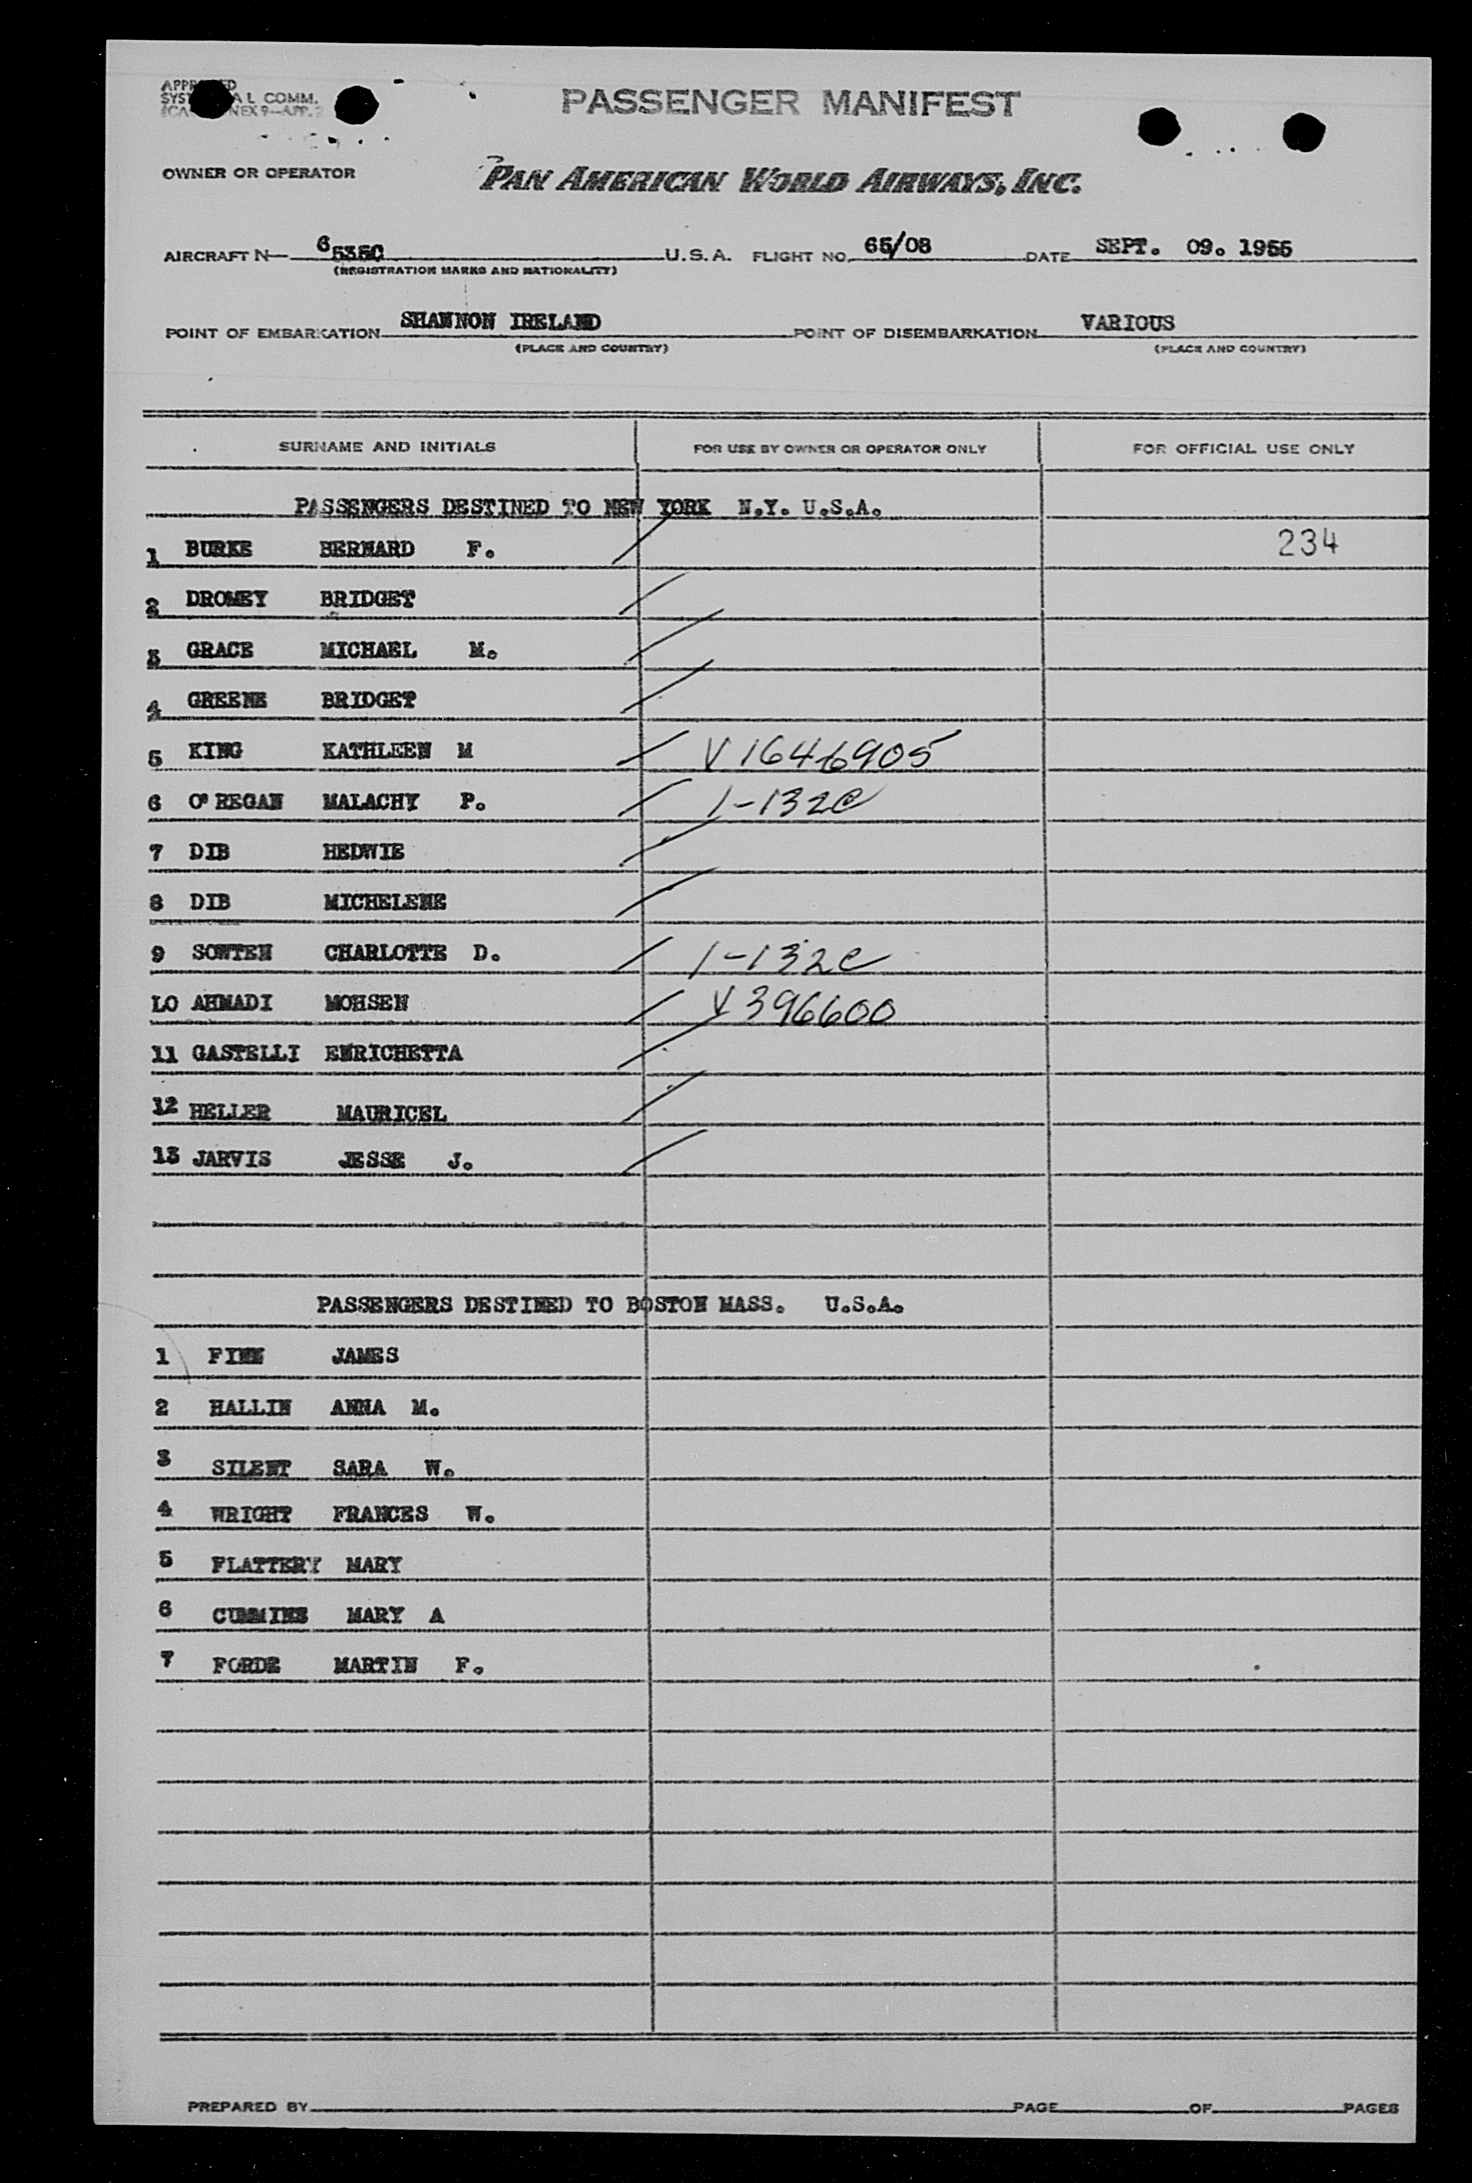 PASSENGER MANIFEST
OWNER OR OPERATOR PAN AMERICAN WORLD AIRWAYS, INC.
AIRCRAFT N 6535C U.S.A. FLIGHT NO. 65/08 DATE SEPT. 09. 1955
(REGISTRATION MARKS AND NATIONALITY)
POINT OF EMBARKATION SHANNON IRELAND POINT OF DISEMBARKATION VARIOUS
(PLACE AND COUNTRY) (PLACE AND COUNTRY)
SURNAME AND INITIALS FOR USE BY OWNER OR OPERATOR ONLY FOR OFFICIAL USE ONLY
PASSENGERS DESTINED TO NEW YORK N.Y. U.S.A.
1 BURKE BERNARD F. 234
2 DROMEY BRIDGET
3 GRACE MICHAEL M.
4 GREENE BRIDGET
5 KING KATHLEEN M V1646905
6 O'REGAN MALACHY P. 1-132C
7 DIB HEDWIE
8 DIB MICHELENE
9 SOWTEN CHARLOTTE D. 1-132C
10 AHMADI MOHSEN V396600
11 GASTELLI ENRICHETTA
12 HELLER MAURICEL
13 JARVIS JESSE J.
PASSENGERS DESTINED TO BOSTON MASS. U.S.A.
1 FINN JAMES
2 HALLIN ANNA M.
3 SILENT SARA W.
4 WRIGHT FRANCES W.
5 FLATTERY MARY
6 CUMMINS MARY A
7 FORDE MARTIN F.
PREPARED BY PAGE OF PAGES